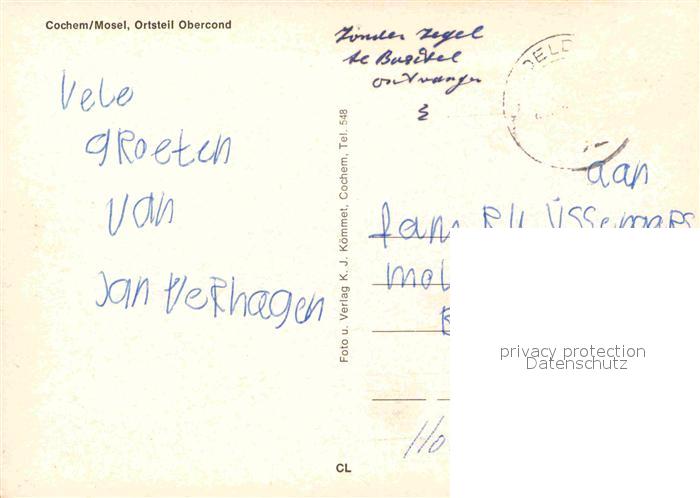 Cochem/Mosel, Ortsteil Obercond
Zonder zegel
te Budel
ontvangen
Vele
gRoeten
van
Jan VeRhagen
Foto u. Verlag K. J. Kömmet, Cochem, Tel. 548
aan
fam
mol
privacy protection
Datenschutz
CL